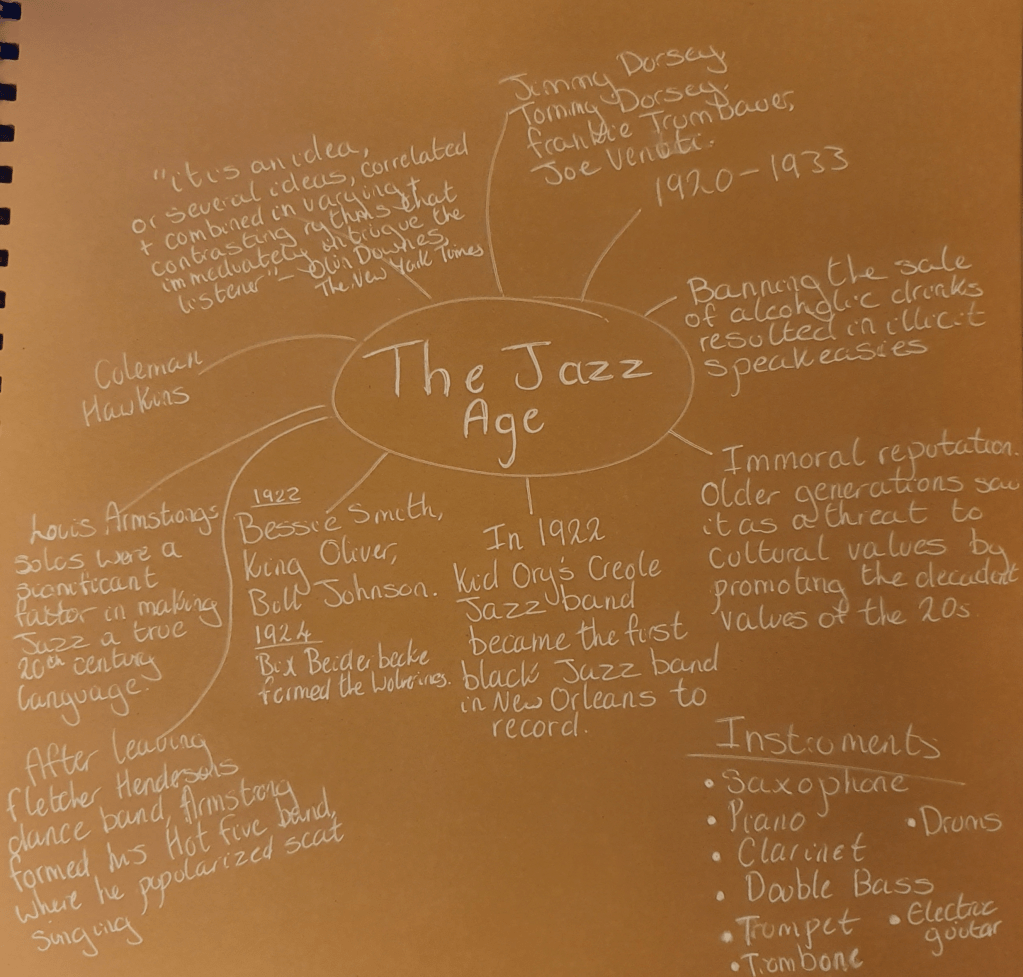 The Jazz
Age
"it is an idea,
or several ideas, correlated
+ combined in varying +
contrasting rythms that
immediately intrigue the
listener" - Olin Downes,
The New York Times
Jimmy Dorsey
Tommy Dorsey.
frankie Trumbauer,
Joe Venuti.
1920-1933
Banning the sale
of alcoholic drinks
resulted in illicit
speakeasies
Immoral reputation.
Older generations saw
it as a threat to
cultural values by
promoting the decadent
values of the 20s.
In 1922
Kid Ory's Creole
Jazz band
became the first
black Jazz band
in New Orleans to
record.
1922
Bessie Smith,
King Oliver,
Bill Johnson.
1924
Bix Beiderbecke
formed the Wolverines.
Coleman
Hawkins
Louis Armstrongs
solos were a
significant
factor in making
Jazz a true
20th century
language.
After leaving
Fletcher Hendersons
dance band, Armstrong
formed his Hot five band,
where he popularized scat
singing
Instruments
• Saxophone
• Piano
• Drums
• Clarinet
• Double Bass
• Trumpet
• Electric
guitar
• Trombone